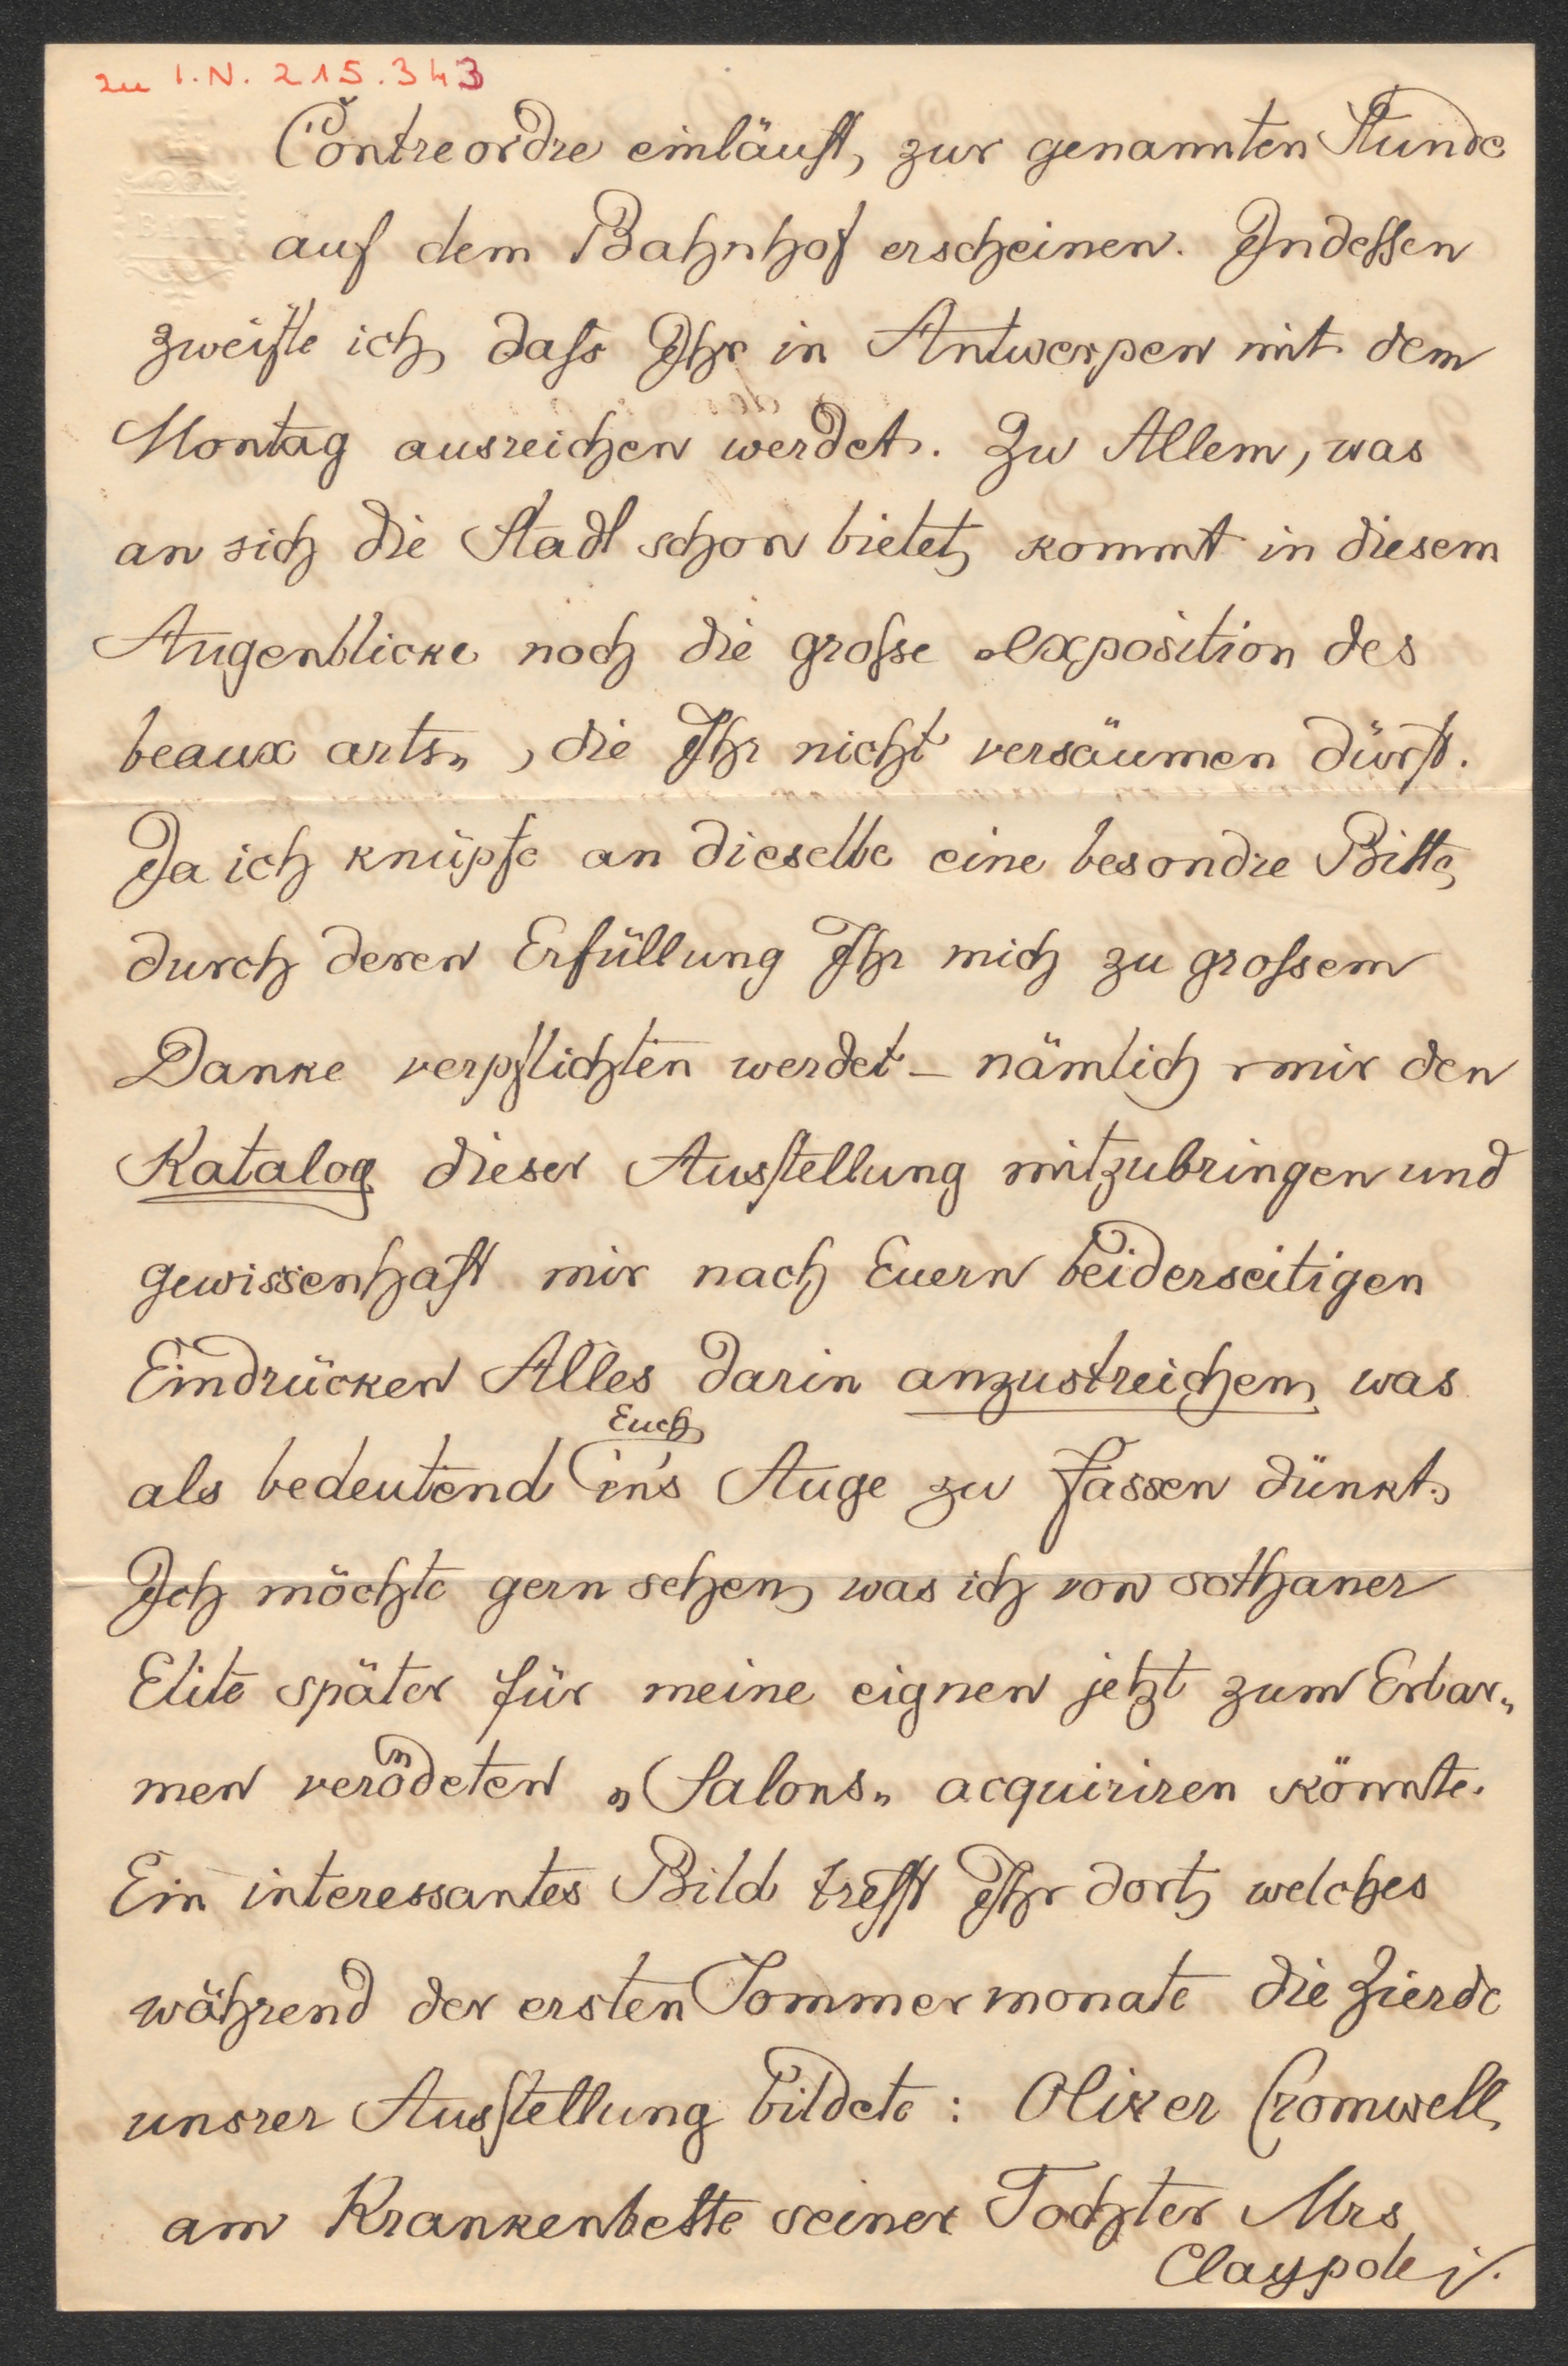 zu I.N. 215.343
Contreordre einläuft, zur genannten Stunde
auf dem Bahnhof erscheinen. Indessen
zweifle ich, dass Ihr in Antwerpen mit dem
Montag ausreichen werdet. Zu Allem, was
an sich die Stadt schon bietet, kommt in diesem
Augenblicke noch die grosse „exposition des
beaux arts„, die Ihr nicht versäumen dürft.
Ja ich knüpfe an dieselbe eine besondre Bitte,
durch deren Erfüllung Ihr mich zu grossem
Danke verpflichten werdet – nämlich mir den
Katalog dieser Ausstellung mitzubringen und
gewissenhaft mir nach Euern beiderseitigen
Eindrücken Alles darin anzustreichen, was
Euch
als bedeutend in's Auge zu fassen dünkt.
Ich möchte gern sehen, was ich von sothaner
Elite später für meine eignen jetzt zum Erbar„
men verödeten „Salons„ acquiriren könnte.
Ein interessantes Bild trefft Ihr dort, welches
während der ersten Sommermonate die Zierde
unsrer Ausstellung bildete: Oliver Cromwell
am Krankenbette seiner Tochter Mrs
Claypole,